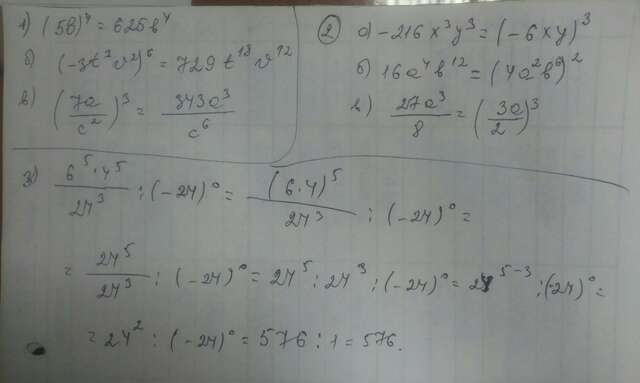 1) (5в)⁴ = 625в⁴
б) (-3t³ v²)⁶ = 729 t¹⁸ v¹²
в) (7a/c²)³ = 343a³/c⁶
2 а) -216x³y³ = (-6xy)³
б) 16a⁴b¹² = (4a²b⁶)²
в) 27a³/8 = (3a/2)³
3) 6⁵·4⁵/24³ : (-24)⁰ = (6·4)⁵/24³ : (-24)⁰ =
= 24⁵/24³ : (-24)⁰ = 24⁵ : 24³ : (-24)⁰ = 24⁵⁻³ : (-24)⁰ =
= 24² : (-24)⁰ = 576 : 1 = 576.